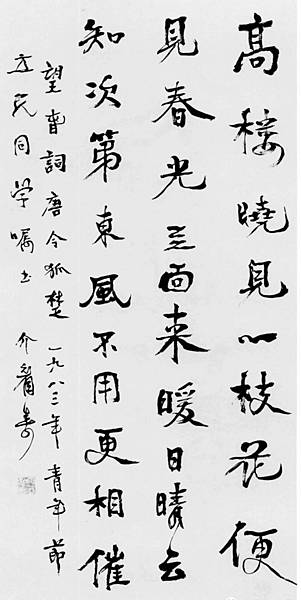 高樓曉見一枝花便
見春光四面来暖日晴云
知次第東風不用更相催
望春詞唐令狐楚 一九八三年青年節
同学嘱书